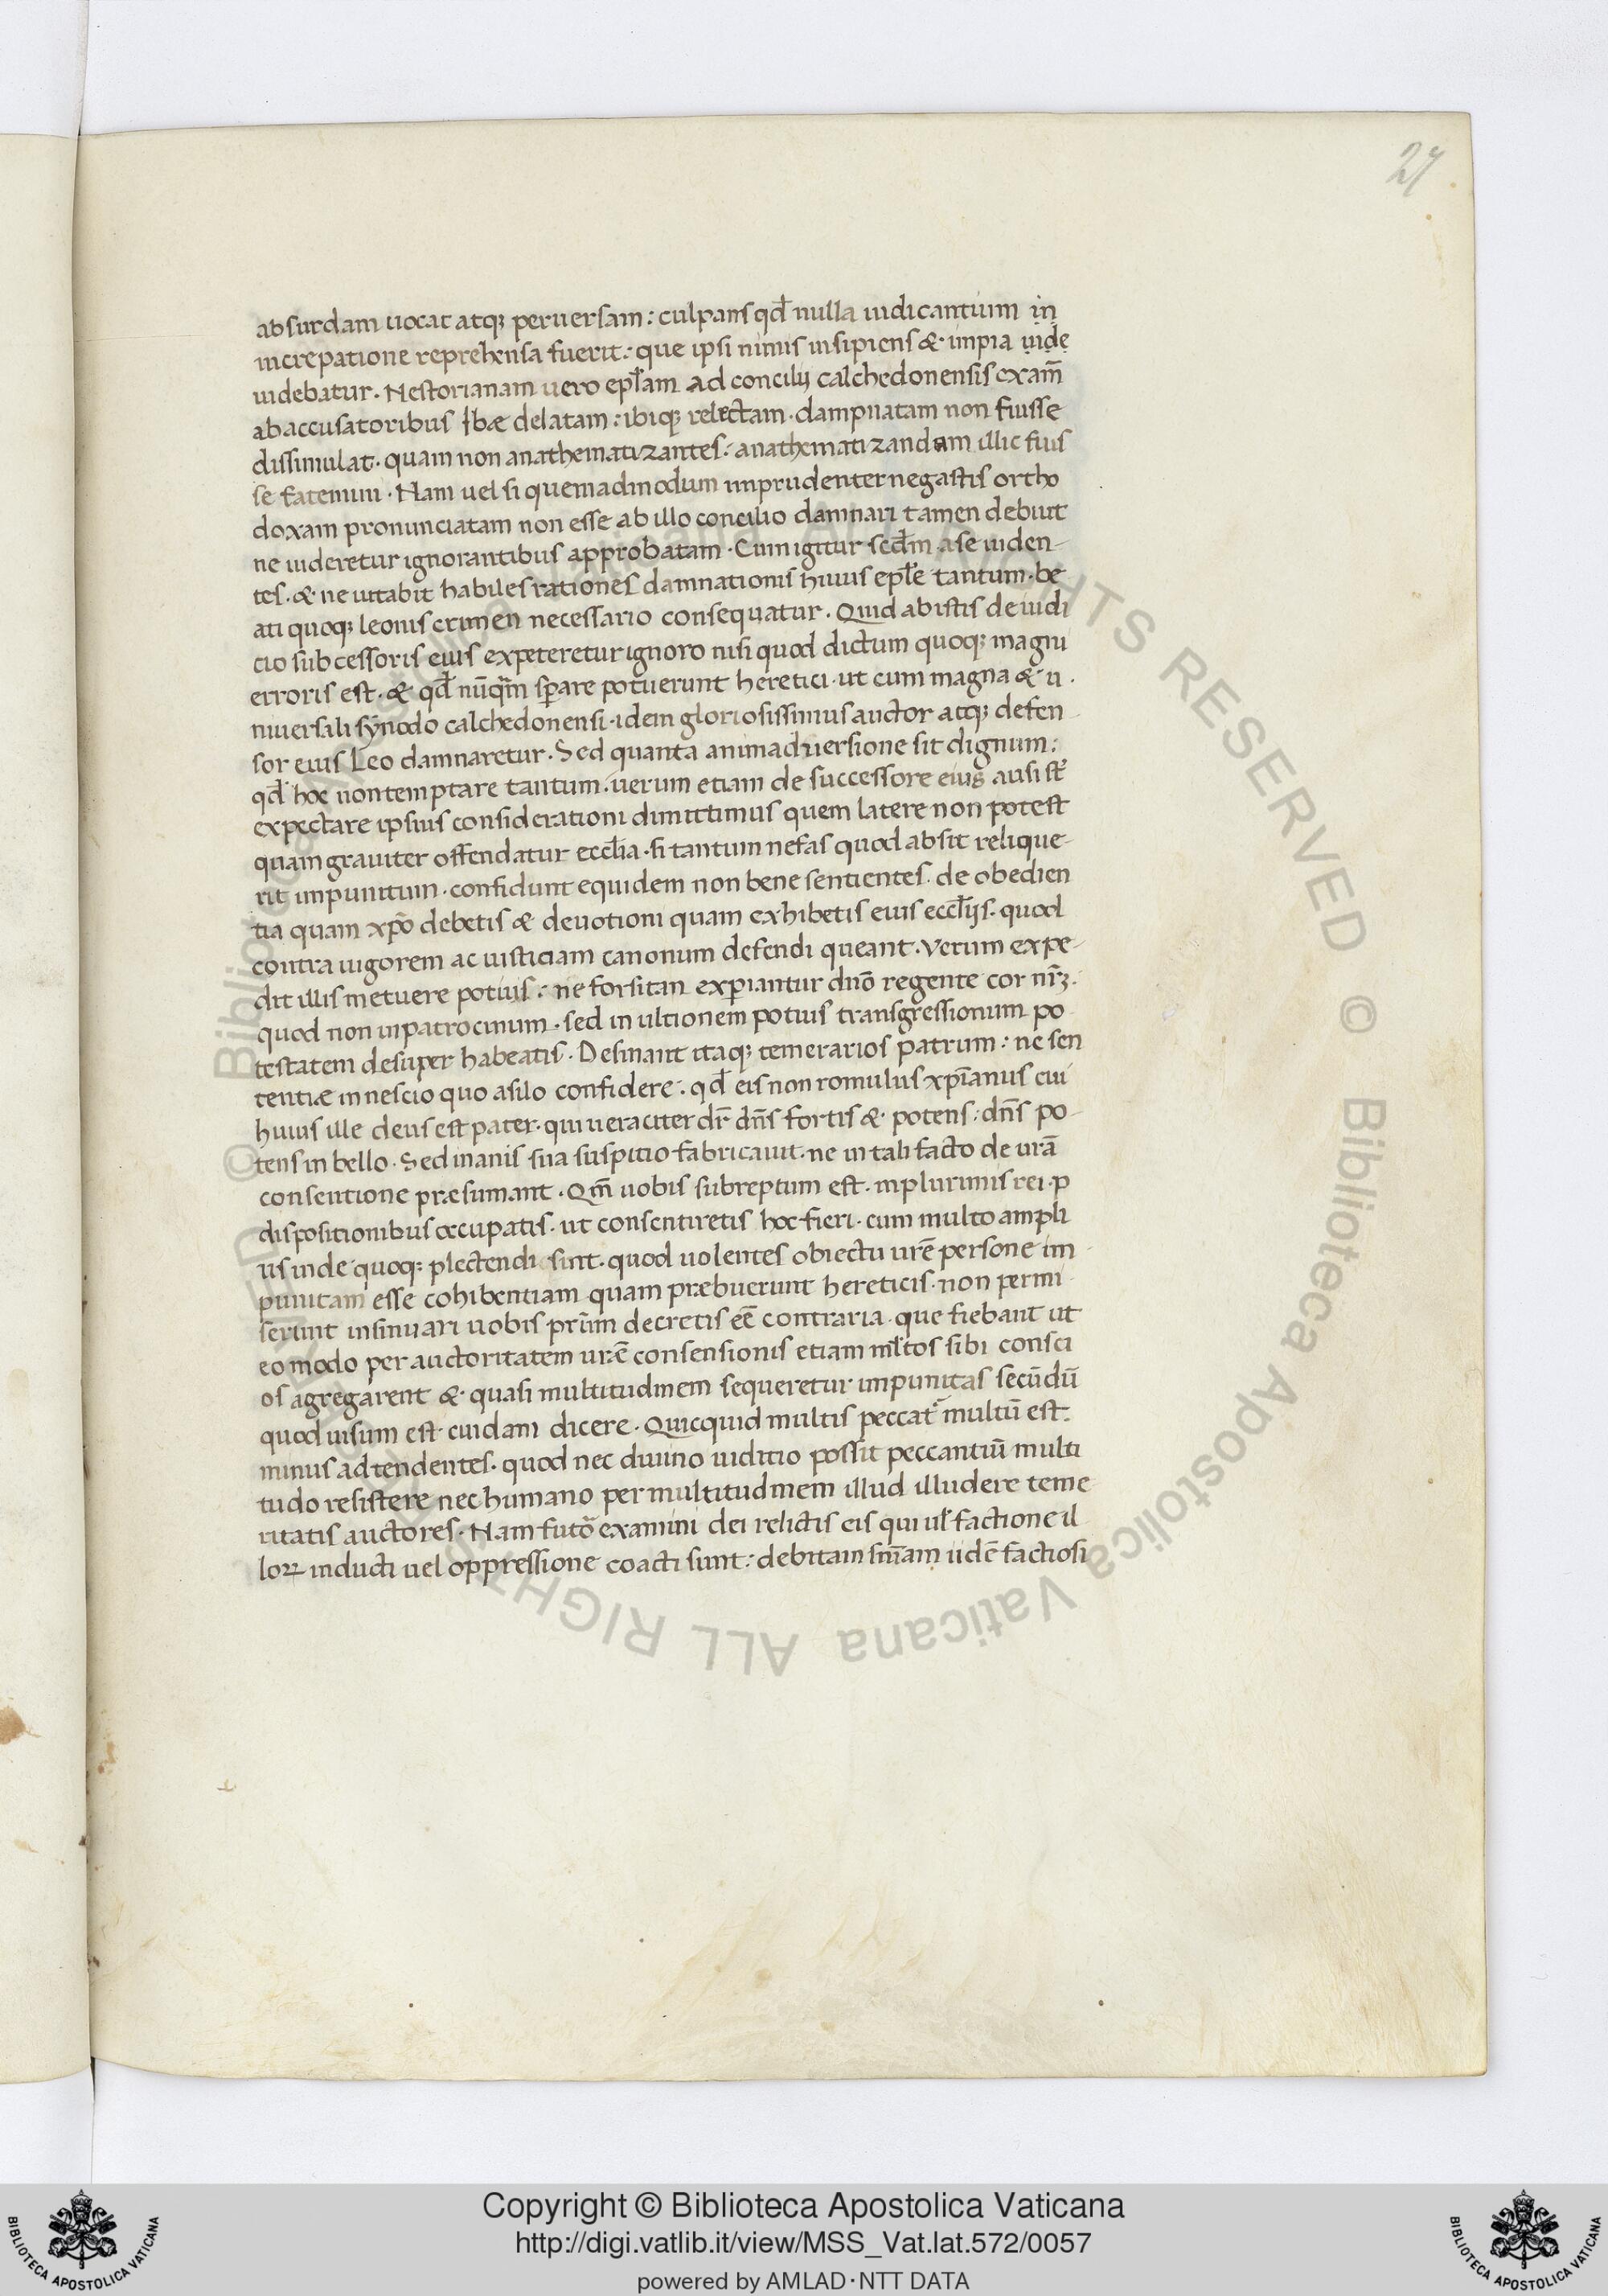 27
absurdam uocat atq; peruersam : culpans qd̄ nulla iudicantium in
increpatione reprehensa fuerit : que ipsi nimis insipiens & impia uide
uidebatur . Nestorianam uero epl̄am ad concilij calchedonensis exam̄
ab accusatoribus Ibæ delatam : ibiq; relectam . dampnatam non fuisse
dissimulat . quam non anathematizantes : anathematizandam illic fuis
se fatemini . Nam uel si quemadmodum imprudenter negastis ortho
doxam pronunciatam non esse ab illo concilio damnari tamen debuit
ne uideretur ignorantibus approbatam . Cum igitur secd̄m a se uiden-
tes . & ne uitabit habiles rationes damnationis huius epl̄e tantum . be
ati quoq; leonis crimen necessario consequatur . Quid ab istis de iudi
cio subcessoris eius expeteretur ignoro nisi quod dictum quoq; magni
erroris est . & qd̄ nūq̄m sp̄are potuerunt heretici . ut cum magna & u .
niuersali synodo calchedonensi . idem gloriosissimus auctor atq; defen
sor eius Leo damnaretur . Sed quanta animaduersione sit dignum :
qd̄ hoc non temptare tantum . uerum etiam de successore eius ausi st̄
expectare ipsius considerationi dimittimus quem latere non potest
quam grauiter offendatur eccl̄ia . si tantum nefas quod absit relique-
rit impunitum . confidunt equidem non bene sentientes . de obedien
tia quam xp̄o debetis & deuotioni quam exhibetis eius eccl̄ijs . quod
contra uigorem ac iusticiam canonum defendi queant . Verum expe-
dit illis metuere potius : ne forsitan exp̄iantur dn̄o regente cor nr̄3 .
quod non in patrocinium . sed in ultionem potius transgressionum po
testatem desuper habeatis . Desinant itaq; temerarios patrum : ne sen
tentiæ in nescio quo asilo confidere . qd̄ eis non romulus xp̄ianus cui
huius ille deus est pater . qui ueraciter dr̄ dn̄s fortis & potens : dn̄s po-
tens in bello . Sed inanis sua suspitio fabricauit . ne in tali facto de ur̄a
consentione præsumant . Qm̄ uobis subreptum est . in plurimis rei . p
dispositionibus occupatis . ut consentiretis hoc fieri . cum multo ampli
us inde quoq; plectendi sint . quod uolentes obiectu ur̄e persone im
punitam esse cohibentiam quam præbuerunt hereticis . non permi
serunt insinuari uobis pr̄um decretis eē contraria . que fiebant ut
eo modo per auctoritatem ur̄e consensionis etiam ml̄tos sibi consci
os agregarent & quasi multitudinem sequeretur impunitas secūdū
quod uisum est cuidam dicere . Quicquid multis peccat̄ multū est .
minus adtendentes . quod nec diuino iuditio possit peccantiū multi
tudo resistere nec humano per multitudinem illud illudere teme
ritatis auctores . Nam futō examini dei relictis eis qui ul̄ factione il
loꝝ inducti uel oppressione coacti sunt : debitam sn̄iam iidē factiosi
Copyright © Biblioteca Apostolica Vaticana
http://digi.vatlib.it/view/MSS_Vat.lat.572/0057
powered by AMLAD · NTT DATA
BIBLIOTECA APOSTOLICA VATICANA
BIBLIOTECA APOSTOLICA VATICANA
© Biblioteca Apostolica Vaticana ALL RIGHTS RESERVED